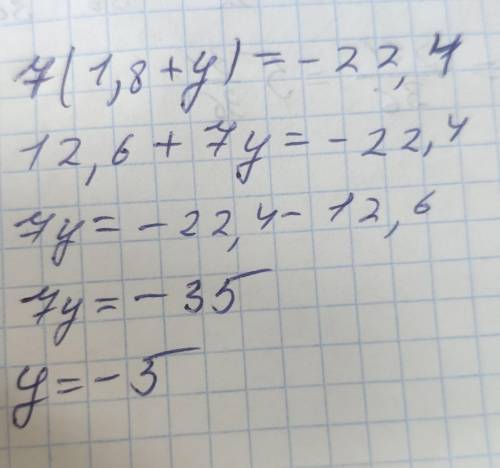 7(1,8+y)=-22,4
12,6+7y=-22,4
7y=-22,4-12,6
7y=-35
y=-5